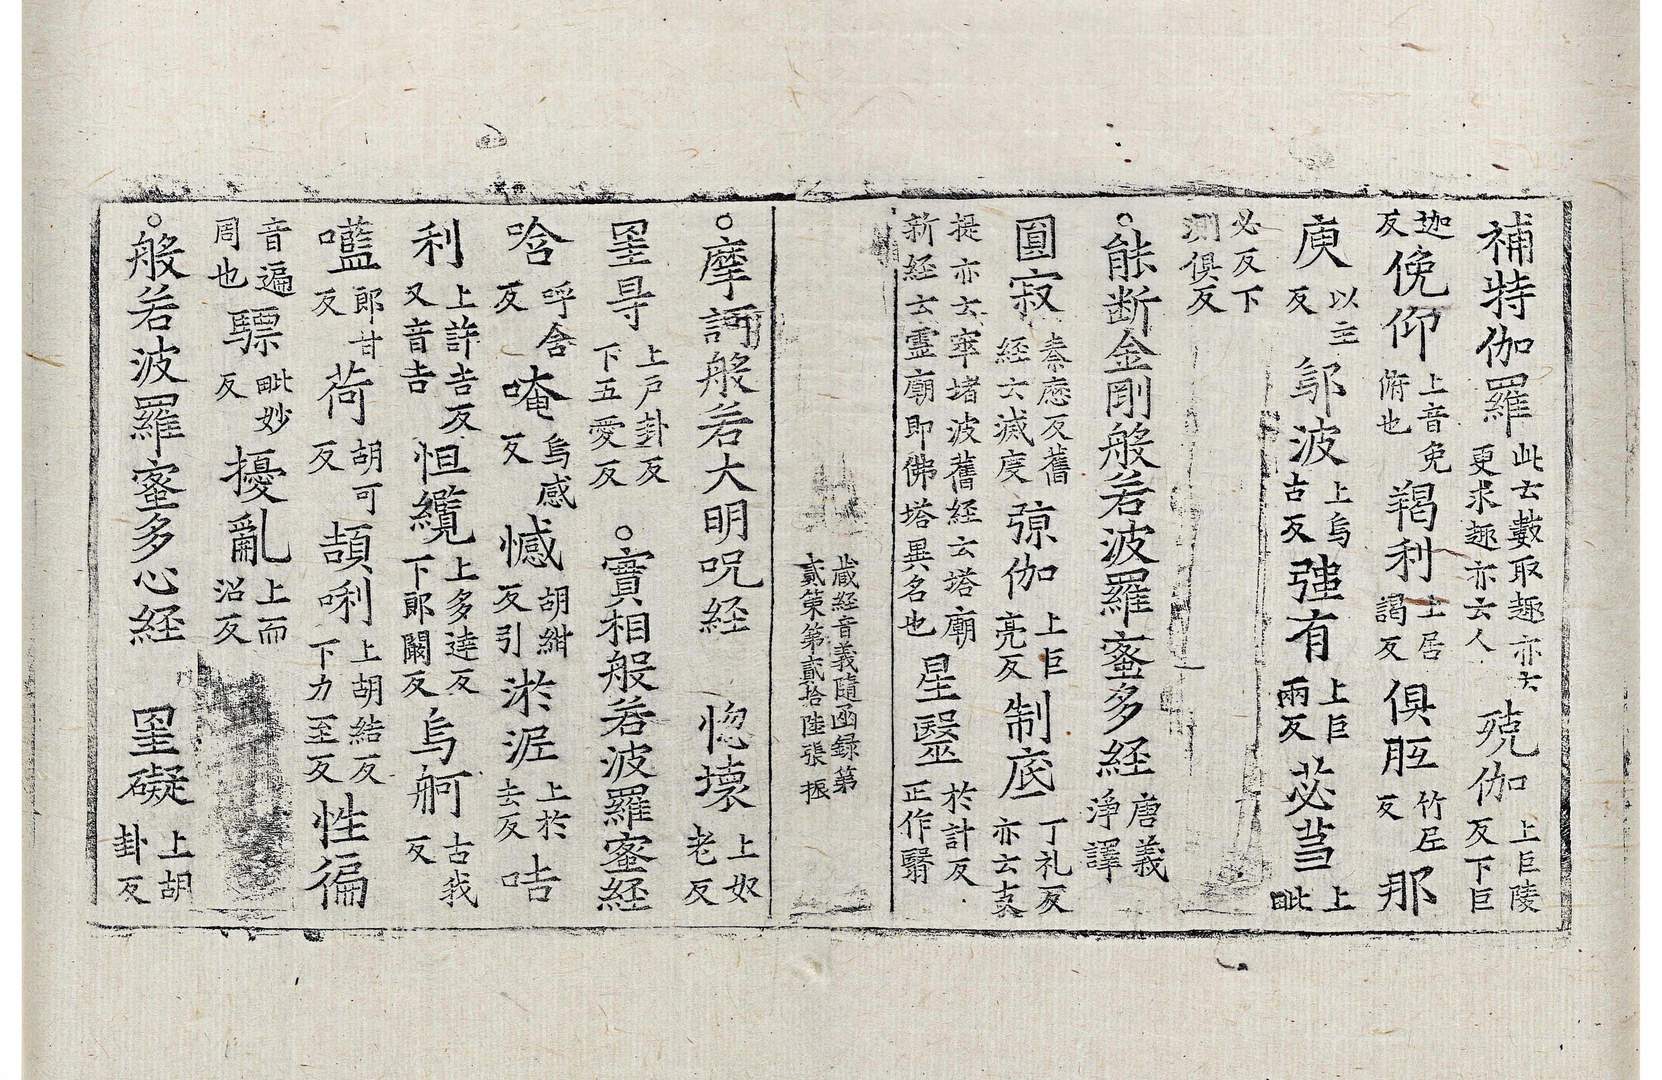 補特伽羅此云數取趣亦云更求趣亦云人殑伽上巨陵反下巨
迦反俛仰上音免俯也羯利上居謁反俱胝竹尼反那
庾以主反鄔波上烏古反強有上巨兩反苾芻上毗
必反下測俱反
○能断金剛般若波羅蜜多經唐義淨譯
圓寂秦應反舊經云滅度弶伽上巨亮反制底丁礼反亦云支
提亦云窣堵波舊經云塔廟新經云霊廟即佛塔異名也星翳於計反正作翳
蔵經音義隨函録第貳第貳拾陸張 振
○摩訶般若大明呪經 惚壊上奴老反
罣㝵上戸卦反下五愛反 ○實相般若波羅蜜經
唅呼含反唵烏感反憾胡紺反引淤泥上於去反咭
利上許吉反又音吉怛纜上多達反下郎闞反烏舸古我反
㘕郎甘反荷胡可反頡唎上胡結反下力至反性徧
音遍周也驃毗妙反擾亂上而沼反
○般若波羅蜜多心經 罣礙上胡卦反